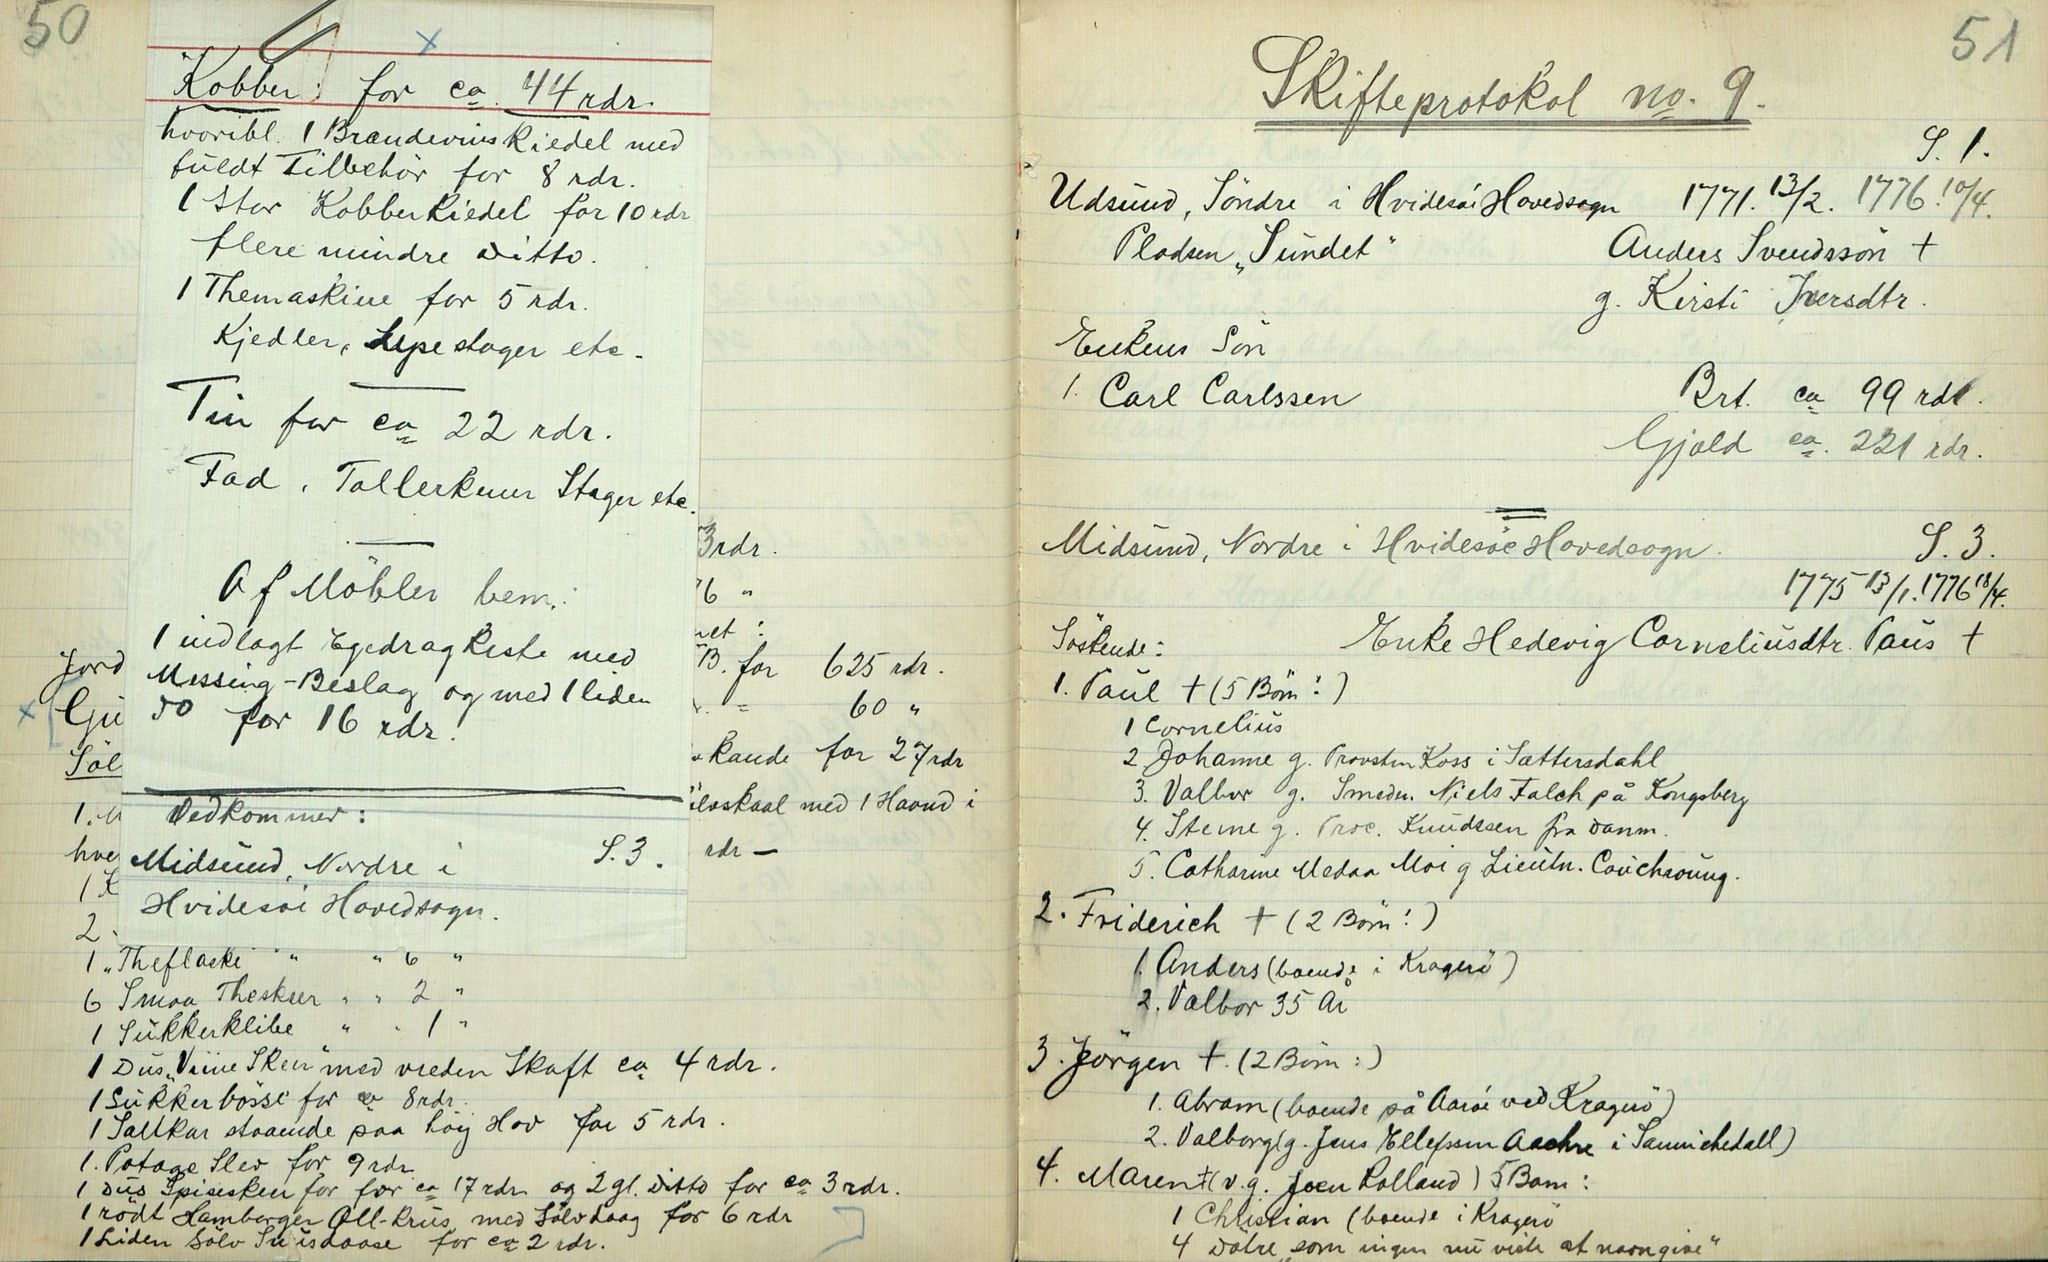 50
Kobber: for ca. 44 rdr.
hvoribl. 1 Brændeviins Kiedel med
fuldt Tilbehör for 8 rdr.
1 Stor Kobberkiedel for 10 rdr
flere mindre ditto.
1 Themaskine for 5 rdr.
Kjedler, Lysestager etc.
Tin for ca 22 rdr.
Fad, Tallerkener Stager etc.
Af Möbler bem.:
1 indlagt Egedragkiste med
Messing-Beslag og med 1 liden
do for 16 rdr.
Vedkommer:
Midsund, Nordre i S. 3.
Hvidesöe Hovedsogn.
3 rdr.
76 "
Jord B. for 625 rdr.
60 "
kande for 27 rdr
med 1 Haand i
rdr —
1 "Theflaske " " 6 "
6 Smaa Theskeer " " 2 "
1 Sukkerklibe " " 1 "
1 Dus. "Viine Skeer" med vreden Skaft ca 4 rdr.
1 Sukkerbösse for ca 8 rdr.
1 Saltkar staaende paa höy Hov for 5 rdr.
1. Potage Slev for 9 rdr.
1 Dus Spiseskeer for for ca 17 rdr og 2 gl. ditto for ca 3 rdr.
1 rödt Hamborger Öll-Krus med Sölvlaag for 6 rdr
1 Liden Sölv Snusdaase for ca 2 rdr.
51
Skifteprotokol no. 9.
S. 1.
Udsund, Söndre i Hvidesöe Hovedsogn 1771. 13/2. 1776. 10/4.
Pladsen "Sundet" Anders Svendssön †
g. Kirsti Iversdtr.
Enkens Sön
1. Carl Carlssen Brt. ca 99 rdr.
Gjæld ca. 221 rdr.
Midsund, Nordre i Hvidesöe Hovedsogn. S. 3.
1775 13/1. 1776 18/4.
Söskende: Enke Hedevig Corneliusdtr. Paus †
1. Paul † (5 Börn:)
1 Cornelius
2. Johanne g. Provsten Koss i Sættersdahl
3. Valbor g. Smeden Niels Falch på Kongsberg
4. Stene g. Proc. Knudssen fra Danm.
5. Catharine Medaa Moi g Lieutn. Couchsoung.
2. Friderich † (2 Börn:)
1. Anders (boende i Kragerö)
2. Valbor 35 År
3. Jörgen †. (2 Börn:)
1. Abram (boende på Aaröe ved Kragerö)
2. Valborg (g. Jens Ellefssen Aachre i Sannichedall)
4. Maren † (v. g. Joen Rolland) 5 Barn:
1 Christian (boende i Kragerö
4 Dötre "som ingen nu viste at navngive"